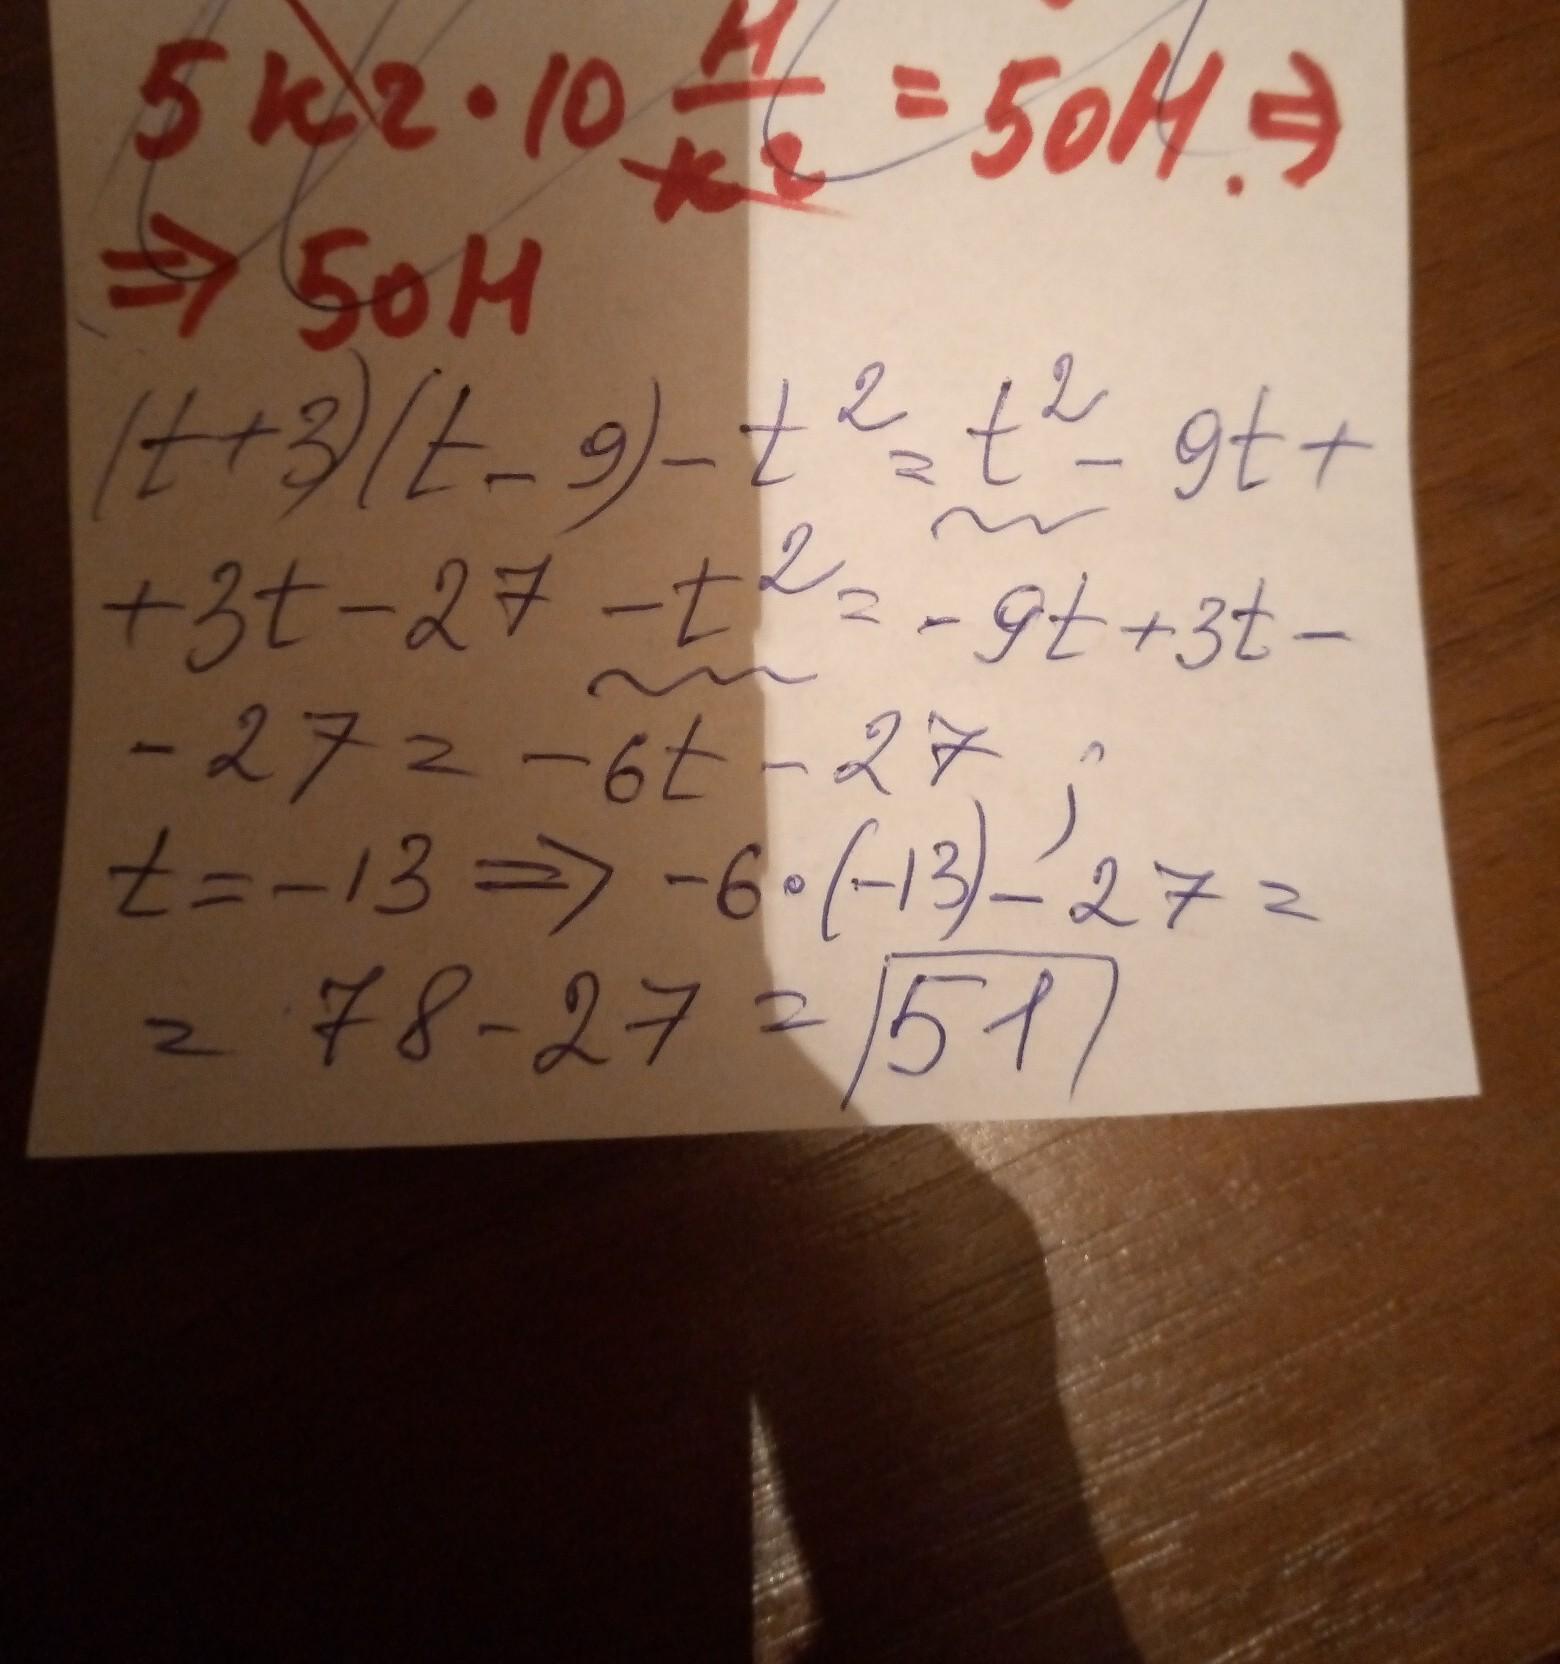 5 кг · 10 Н/кг = 50Н. ⇒
⇒ 50Н
(t+3)(t-9)-t² = t² - 9t +
+3t - 27 - t² = -9t + 3t -
-27 = -6t - 27 ;
t = -13 ⇒ -6·(-13) - 27 =
= 78 - 27 = 51